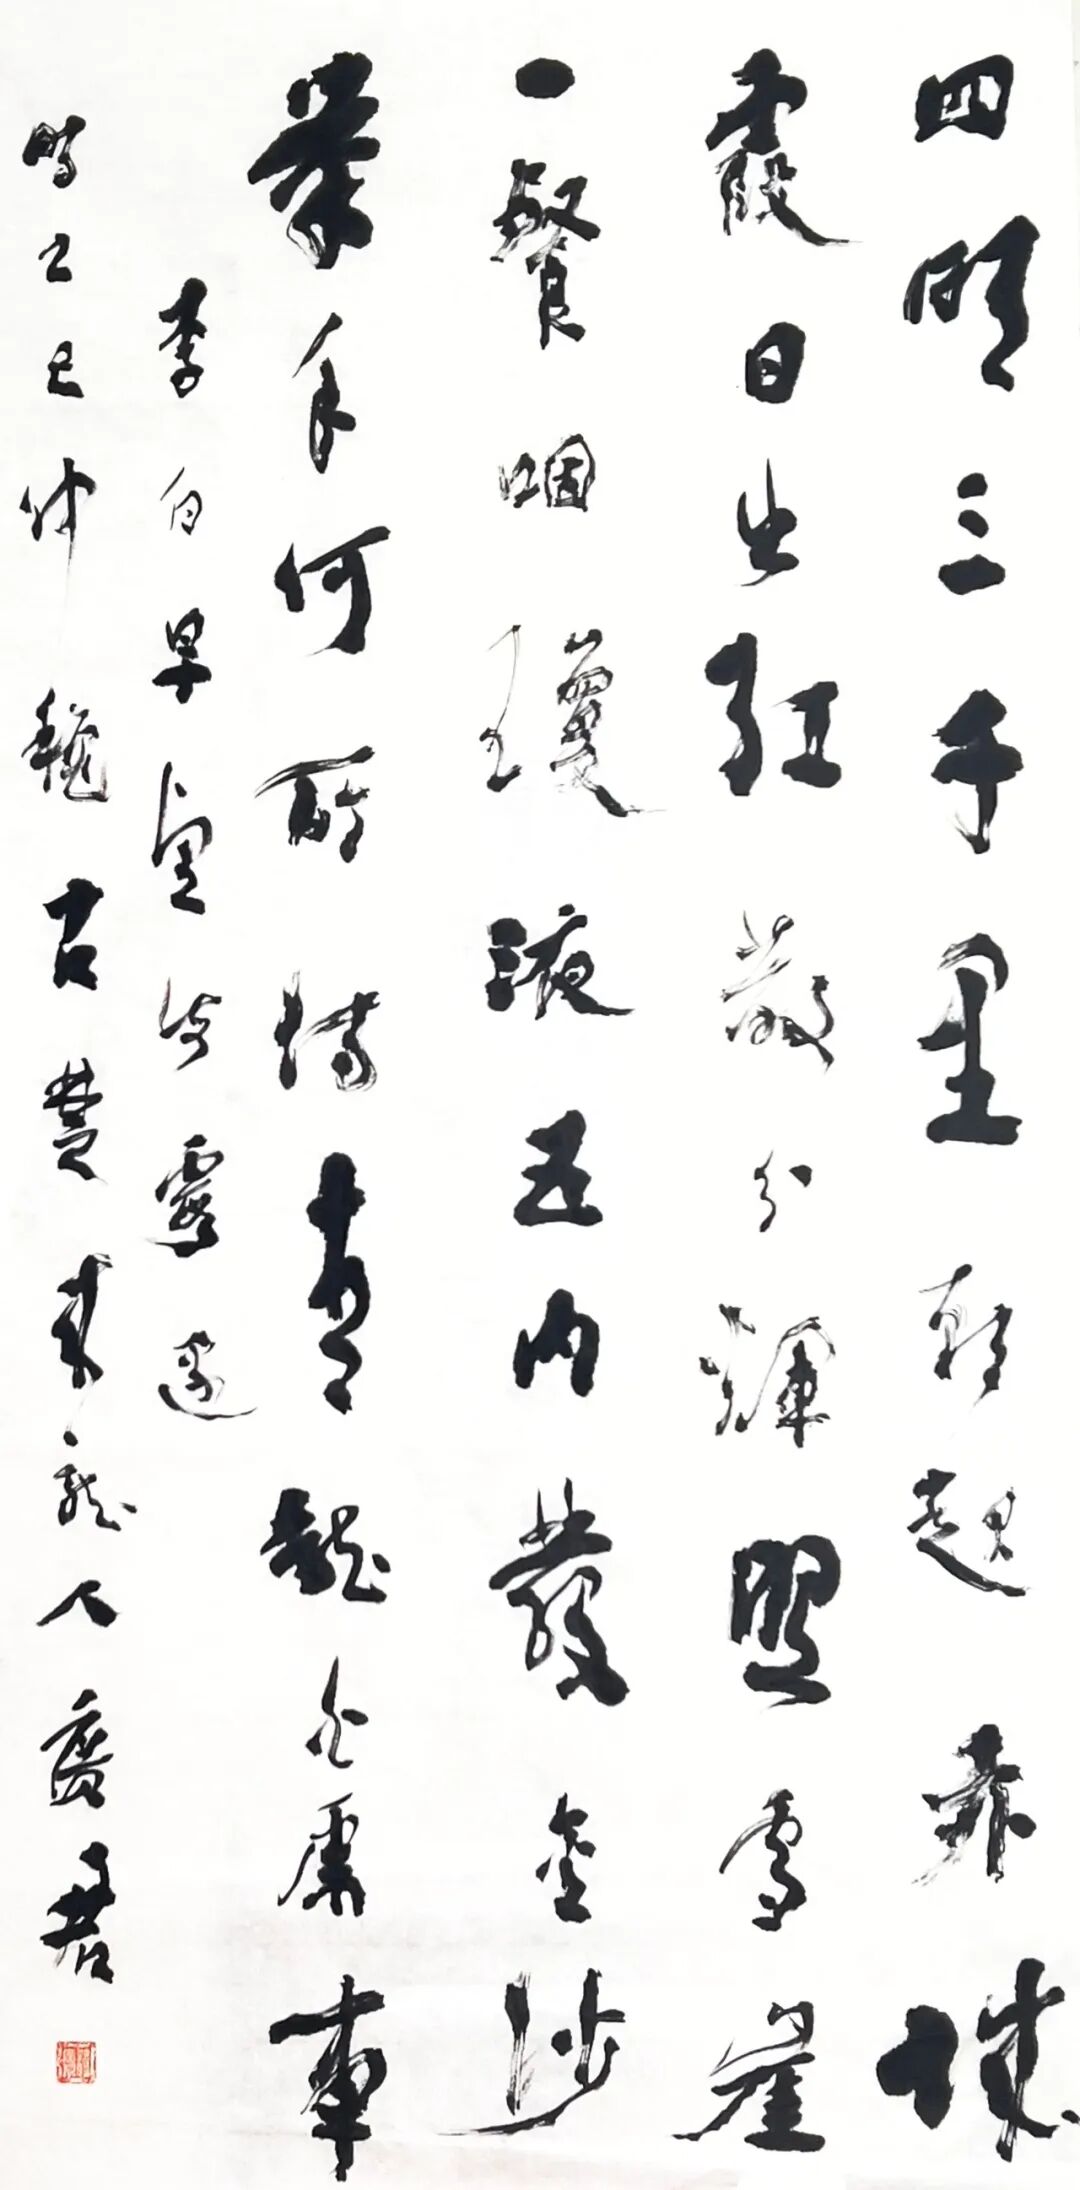 四明三千里朝起赤城
霞日出紅散分輝照雪崖
一餐咽瓊液五內發金沙
舉手何所待青龍白虎車
李白早望海霞邊
時乙巳仲龝古豐龍人